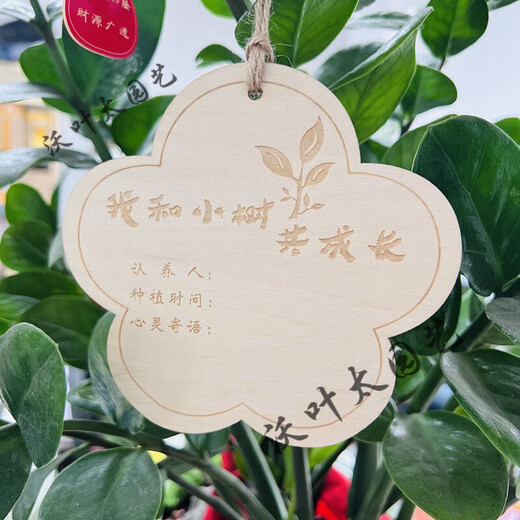 财源广进
沃叶太园艺
我和小树
共成长
认养人：
种植时间：
心灵寄语：
沃叶太园艺